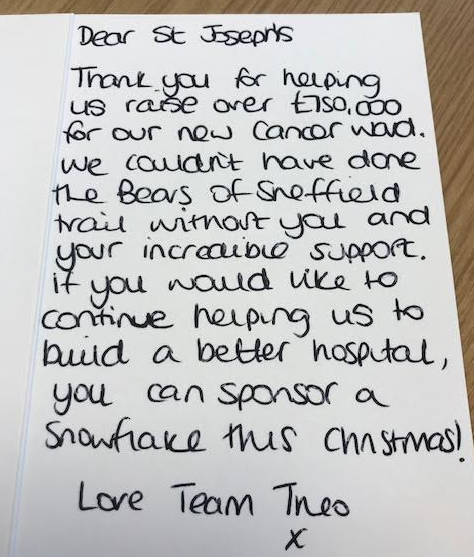 Dear St Joseph's
Thank you for helping
us raise over £750,000
for our new Cancer ward.
we couldn't have done
the Bears of Sheffield
trail without you and
your incredible support.
if you would like to
continue helping us to
build a better hospital,
you can sponsor a
Snowflake this Christmas!
Love Team Theo
x